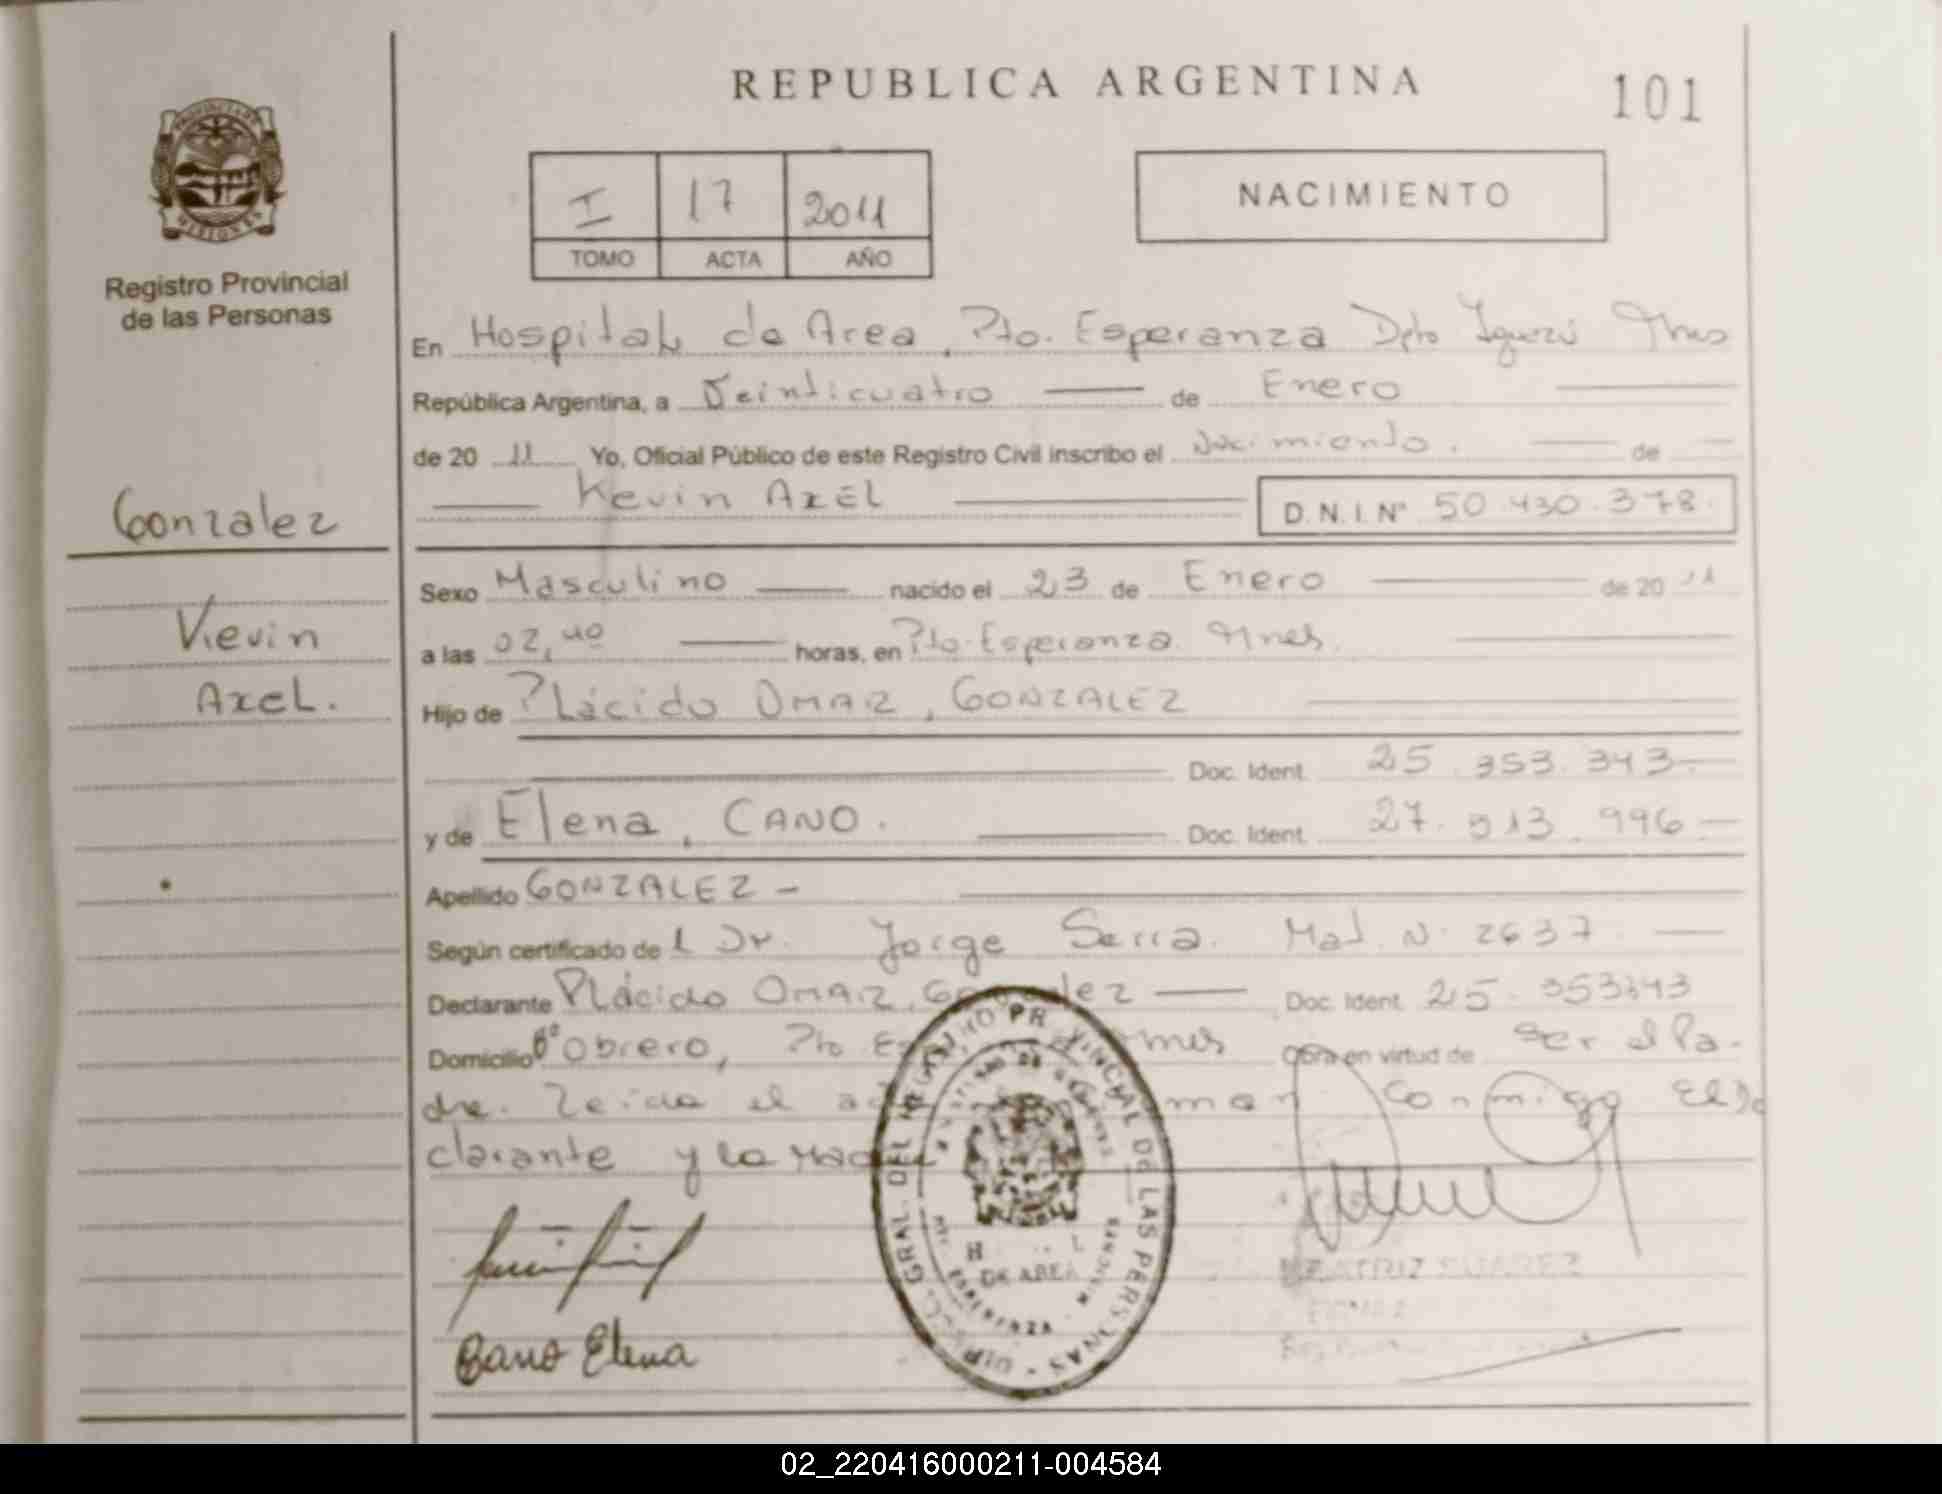 REPUBLICA ARGENTINA
101
PROVINCIA DE
MISIONES
Registro Provincial
de las Personas
I 17 2011
TOMO ACTA AÑO
NACIMIENTO
En Hospital de Area, Pto. Esperanza Dpto Iguazú Mnes
República Argentina, a Veinticuatro de Enero
de 20 11 Yo, Oficial Público de este Registro Civil inscribo el Nacimiento. de
Kevin Axel D.N.I. Nº 50.430.378.
Gonzalez
Kevin
Axel.
Sexo Masculino nacido el 23 de Enero de 20 11
a las 02,40 horas, en Pto. Esperanza. Mnes.
Hijo de Plácido OMAR, GONZALEZ
Doc. Ident. 25.353.343
y de Elena, CANO. Doc. Ident. 27.513.996
Apellido GONZALEZ -
Según certificado de l Dr. Jorge Serra. Mat. N. 2637
Declarante Plácido OMAR, Doc. Ident. 25.353343
Domicilio Bº Obrero, Pto Mnes Obra en virtud de Ser el Pa-
dre. Leida el Conmigo El De
clarante y la
Cano Elena
DE LAS PERSONAS
DE AREA
ESPERANZA
BEATRIZ SUAREZ
02_220416000211-004584